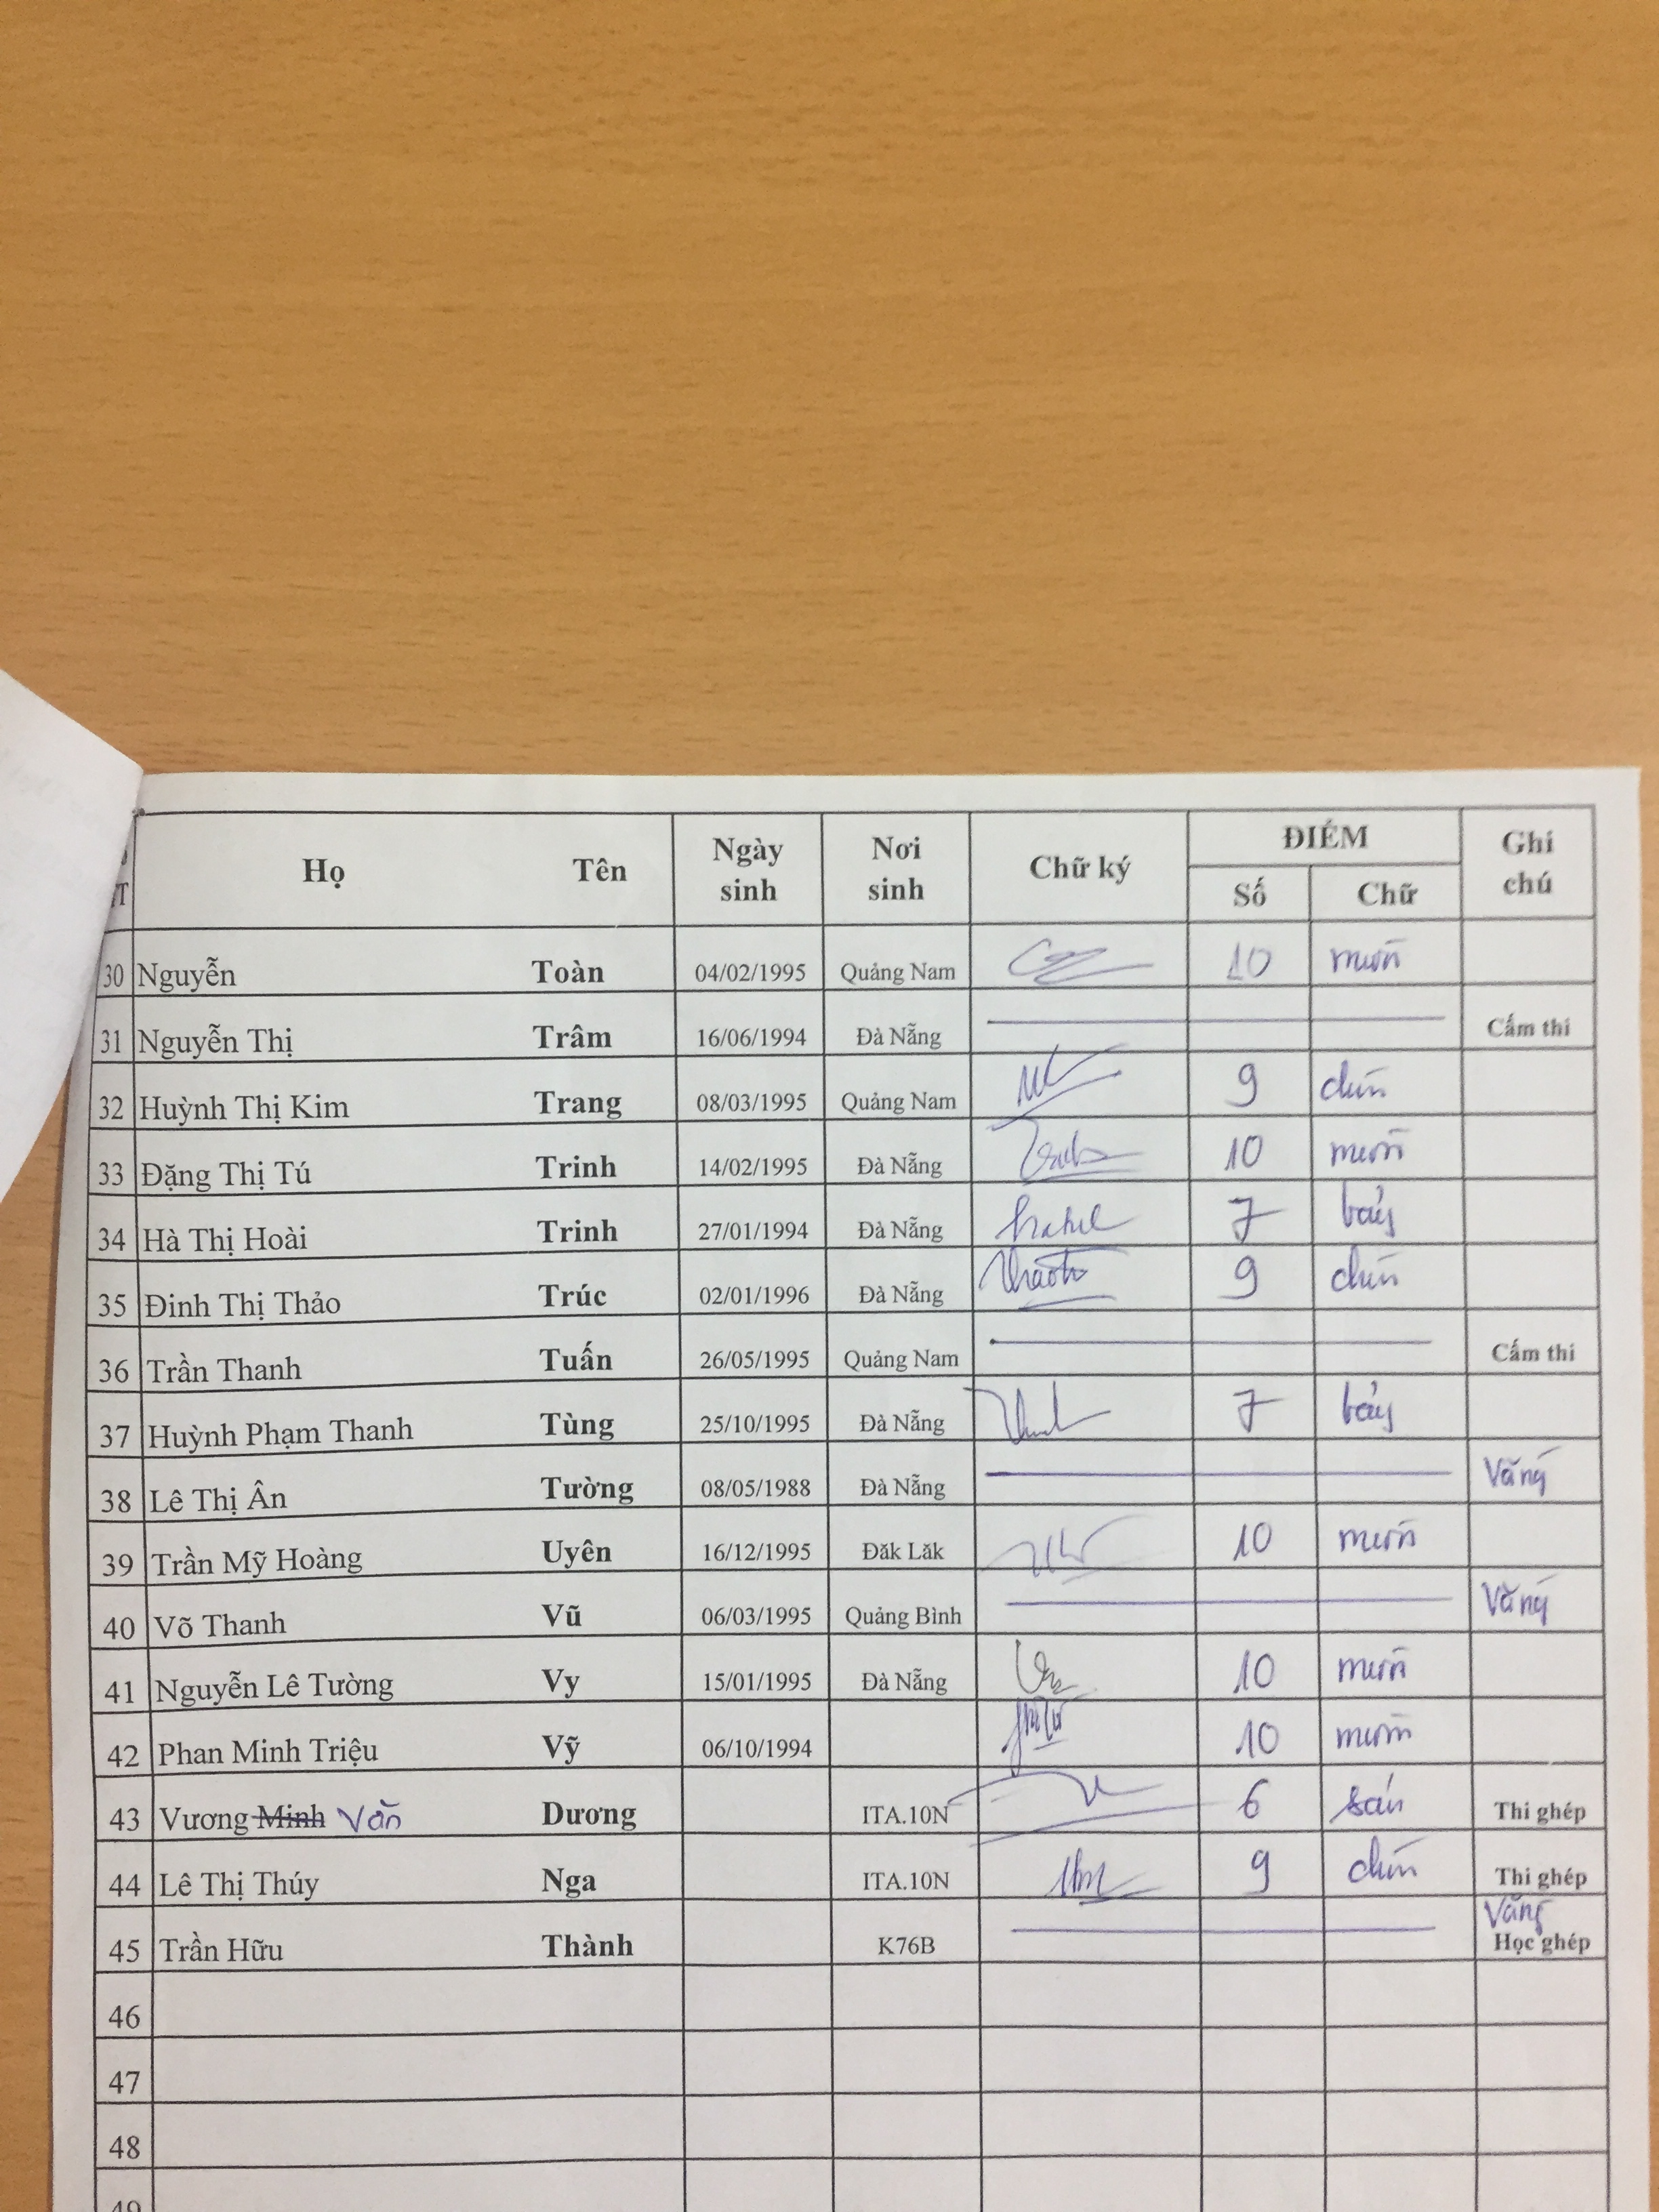 Họ Tên Ngày sinh Nơi sinh Chữ ký ĐIỂM Số Chữ Ghi chú
30 Nguyễn Toàn 04/02/1995 Quảng Nam 10 mười
31 Nguyễn Thị Trâm 16/06/1994 Đà Nẵng Cấm thi
32 Huỳnh Thị Kim Trang 08/03/1995 Quảng Nam 9 chín
33 Đặng Thị Tú Trinh 14/02/1995 Đà Nẵng 10 mười
34 Hà Thị Hoài Trinh 27/01/1994 Đà Nẵng 7 bảy
35 Đinh Thị Thảo Trúc 02/01/1996 Đà Nẵng 9 chín
36 Trần Thanh Tuấn 26/05/1995 Quảng Nam Cấm thi
37 Huỳnh Phạm Thanh Tùng 25/10/1995 Đà Nẵng 7 bảy
38 Lê Thị Ân Tường 08/05/1988 Đà Nẵng Vắng
39 Trần Mỹ Hoàng Uyên 16/12/1995 Đăk Lăk 10 mười
40 Võ Thanh Vũ 06/03/1995 Quảng Bình Vắng
41 Nguyễn Lê Tường Vy 15/01/1995 Đà Nẵng 10 mười
42 Phan Minh Triệu Vỹ 06/10/1994 10 mười
43 Vương Minh Văn Dương ITA.10N 6 sáu Thi ghép
44 Lê Thị Thúy Nga ITA.10N 9 chín Thi ghép
45 Trần Hữu Thành K76B Vắng Học ghép
46
47
48
49